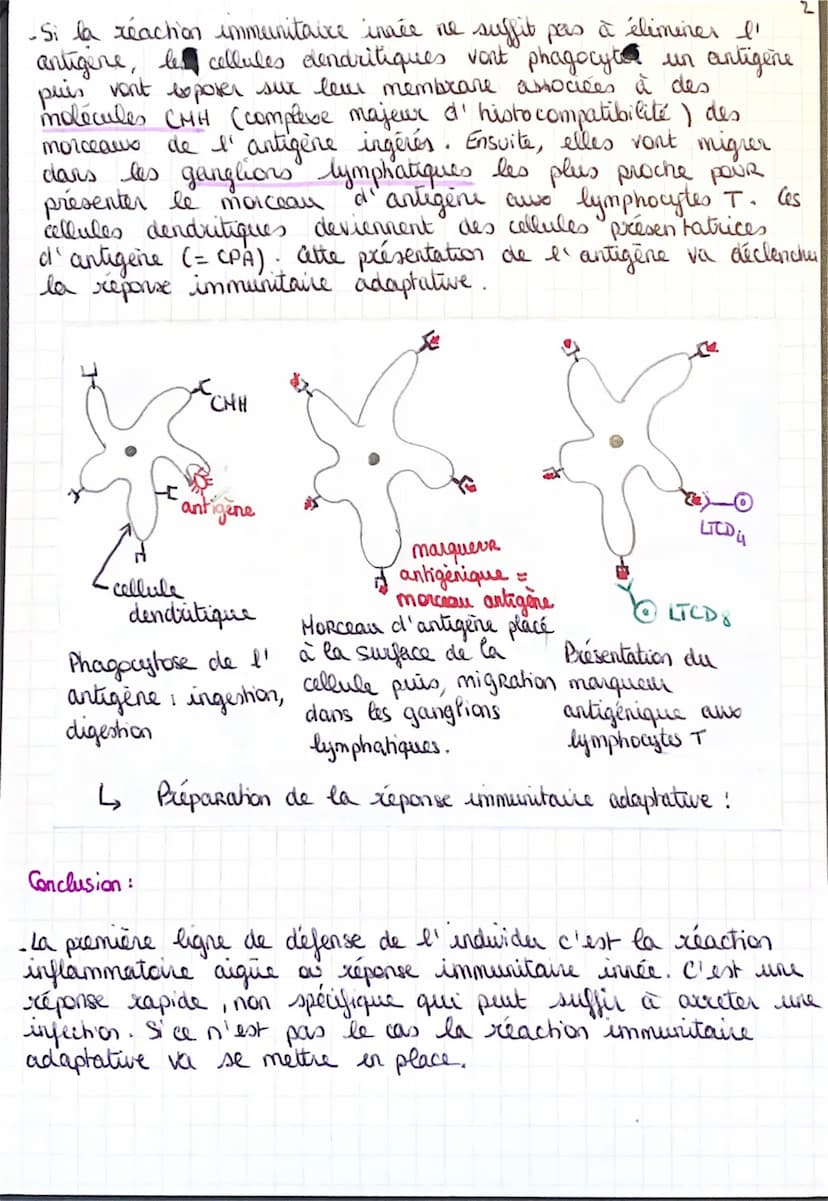 2
- Si la réaction immunitaire innée ne suffit pas à éliminer l'
antigène, les cellules dendritiques vont phagocyter un antigène
puis vont exposer sur leur membrane associées à des
molécules CMH (complexe majeur d'histocompatibilité) des
morceaux de l'antigène ingérés. Ensuite, elles vont migrer
dans les ganglions lymphatiques les plus proche pour
présenter le morceau d'antigène aux lymphocytes T. Ces
cellules dendritiques deviennent des cellules présentatrices
d'antigène (= CPA). Cette présentation de l'antigène va déclencher
la réponse immunitaire adaptative.
CMH
antigène
cellule
dendritique
Phagocytose de l'
antigène : ingestion,
digestion
marqueur
antigénique =
morceau antigène
Morceau d'antigène placé
à la surface de la
cellule puis, migration
dans les ganglions
lymphatiques.
LTCD4
LTCD8
Présentation du
marqueur
antigénique aux
lymphocytes T
↳ Préparation de la réponse immunitaire adaptative !
Conclusion :
- La première ligne de défense de l'individu c'est la réaction
inflammatoire aigüe ou réponse immunitaire innée. C'est une
réponse rapide, non spécifique qui peut suffir à arreter une
infection. Si ce n'est pas le cas la réaction immunitaire
adaptative va se mettre en place.